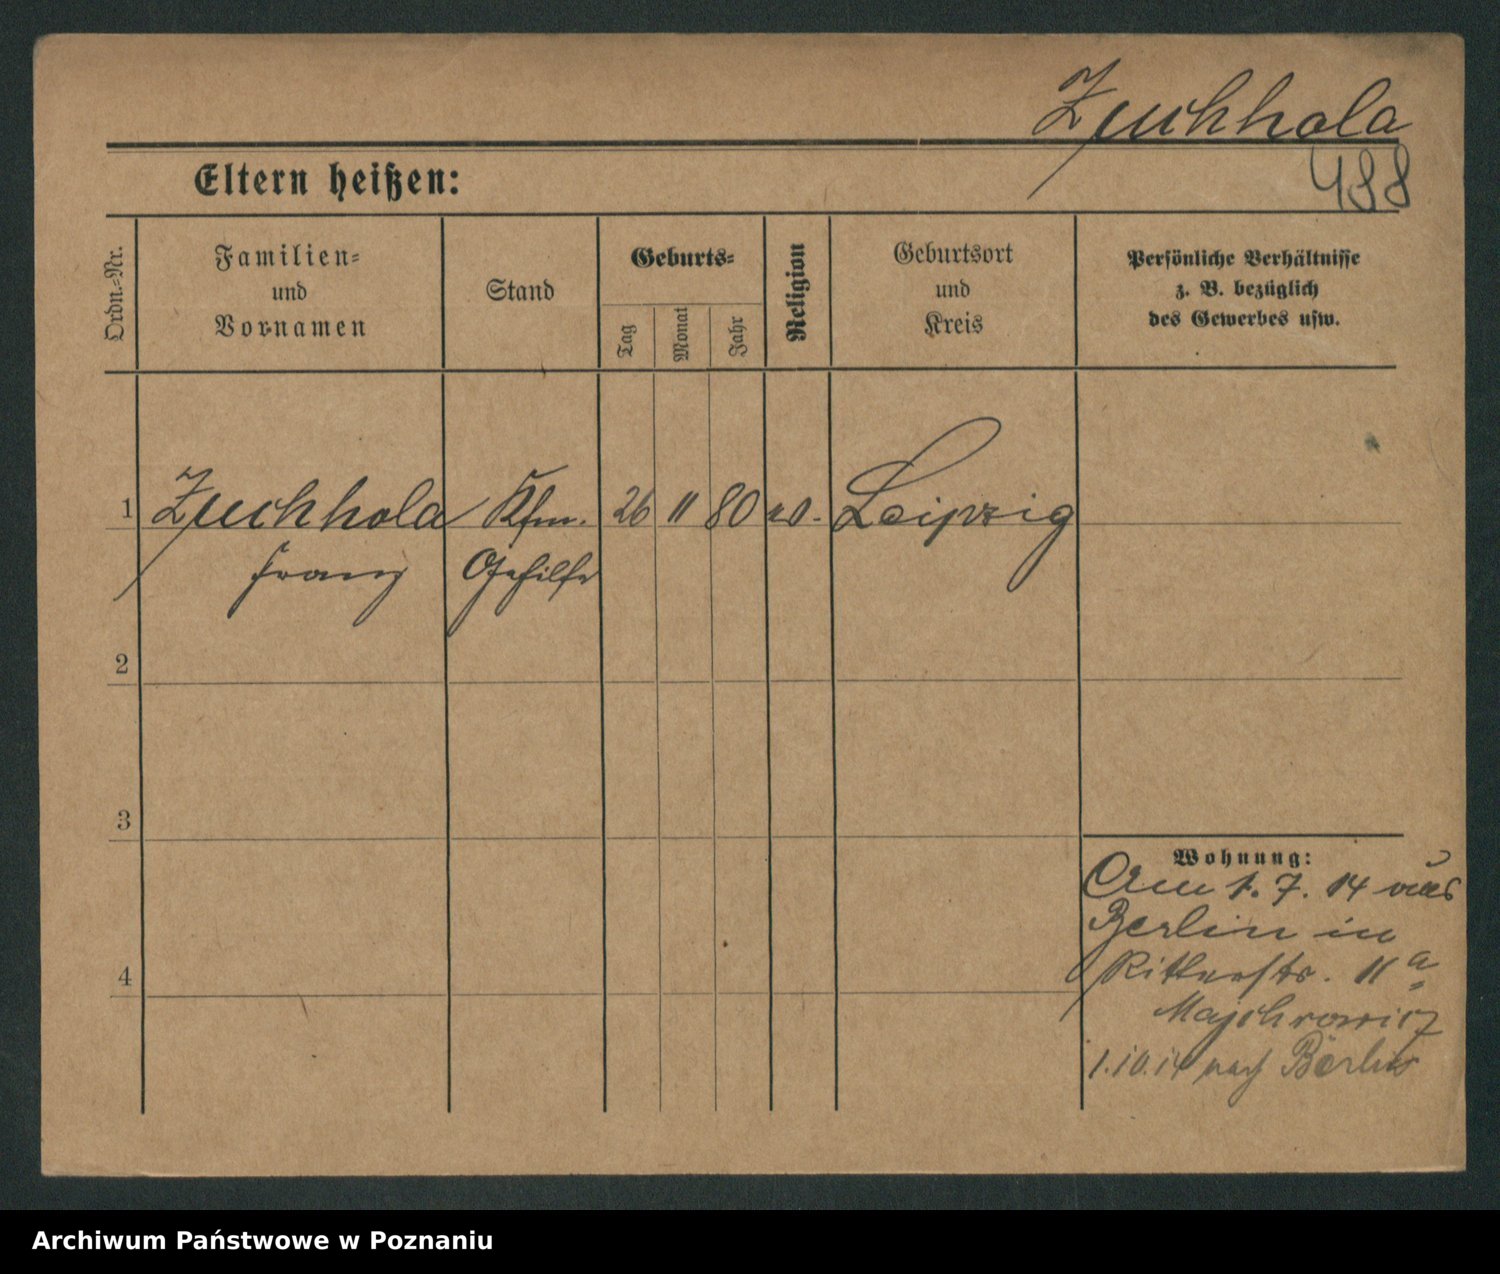 Zuchhola
488
Eltern heißen:
Ordn.-Nr.
Familien-
und
Vornamen
Stand
Geburts-
Tag
Monat
Jahr
Religion
Geburtsort
und
Kreis
Persönliche Verhältnisse
z. B. bezüglich
des Gewerbes usw.
1 Zuchhola Kfm. 26 11 80 Leipzig
Franz Gehilfe
2
3
4
Wohnung:
Am 1. 7. 14 aus
Berlin in
Ritterstr. 11a
Majchrowicz
1.10.14 nach Berlin
Archiwum Państwowe w Poznaniu